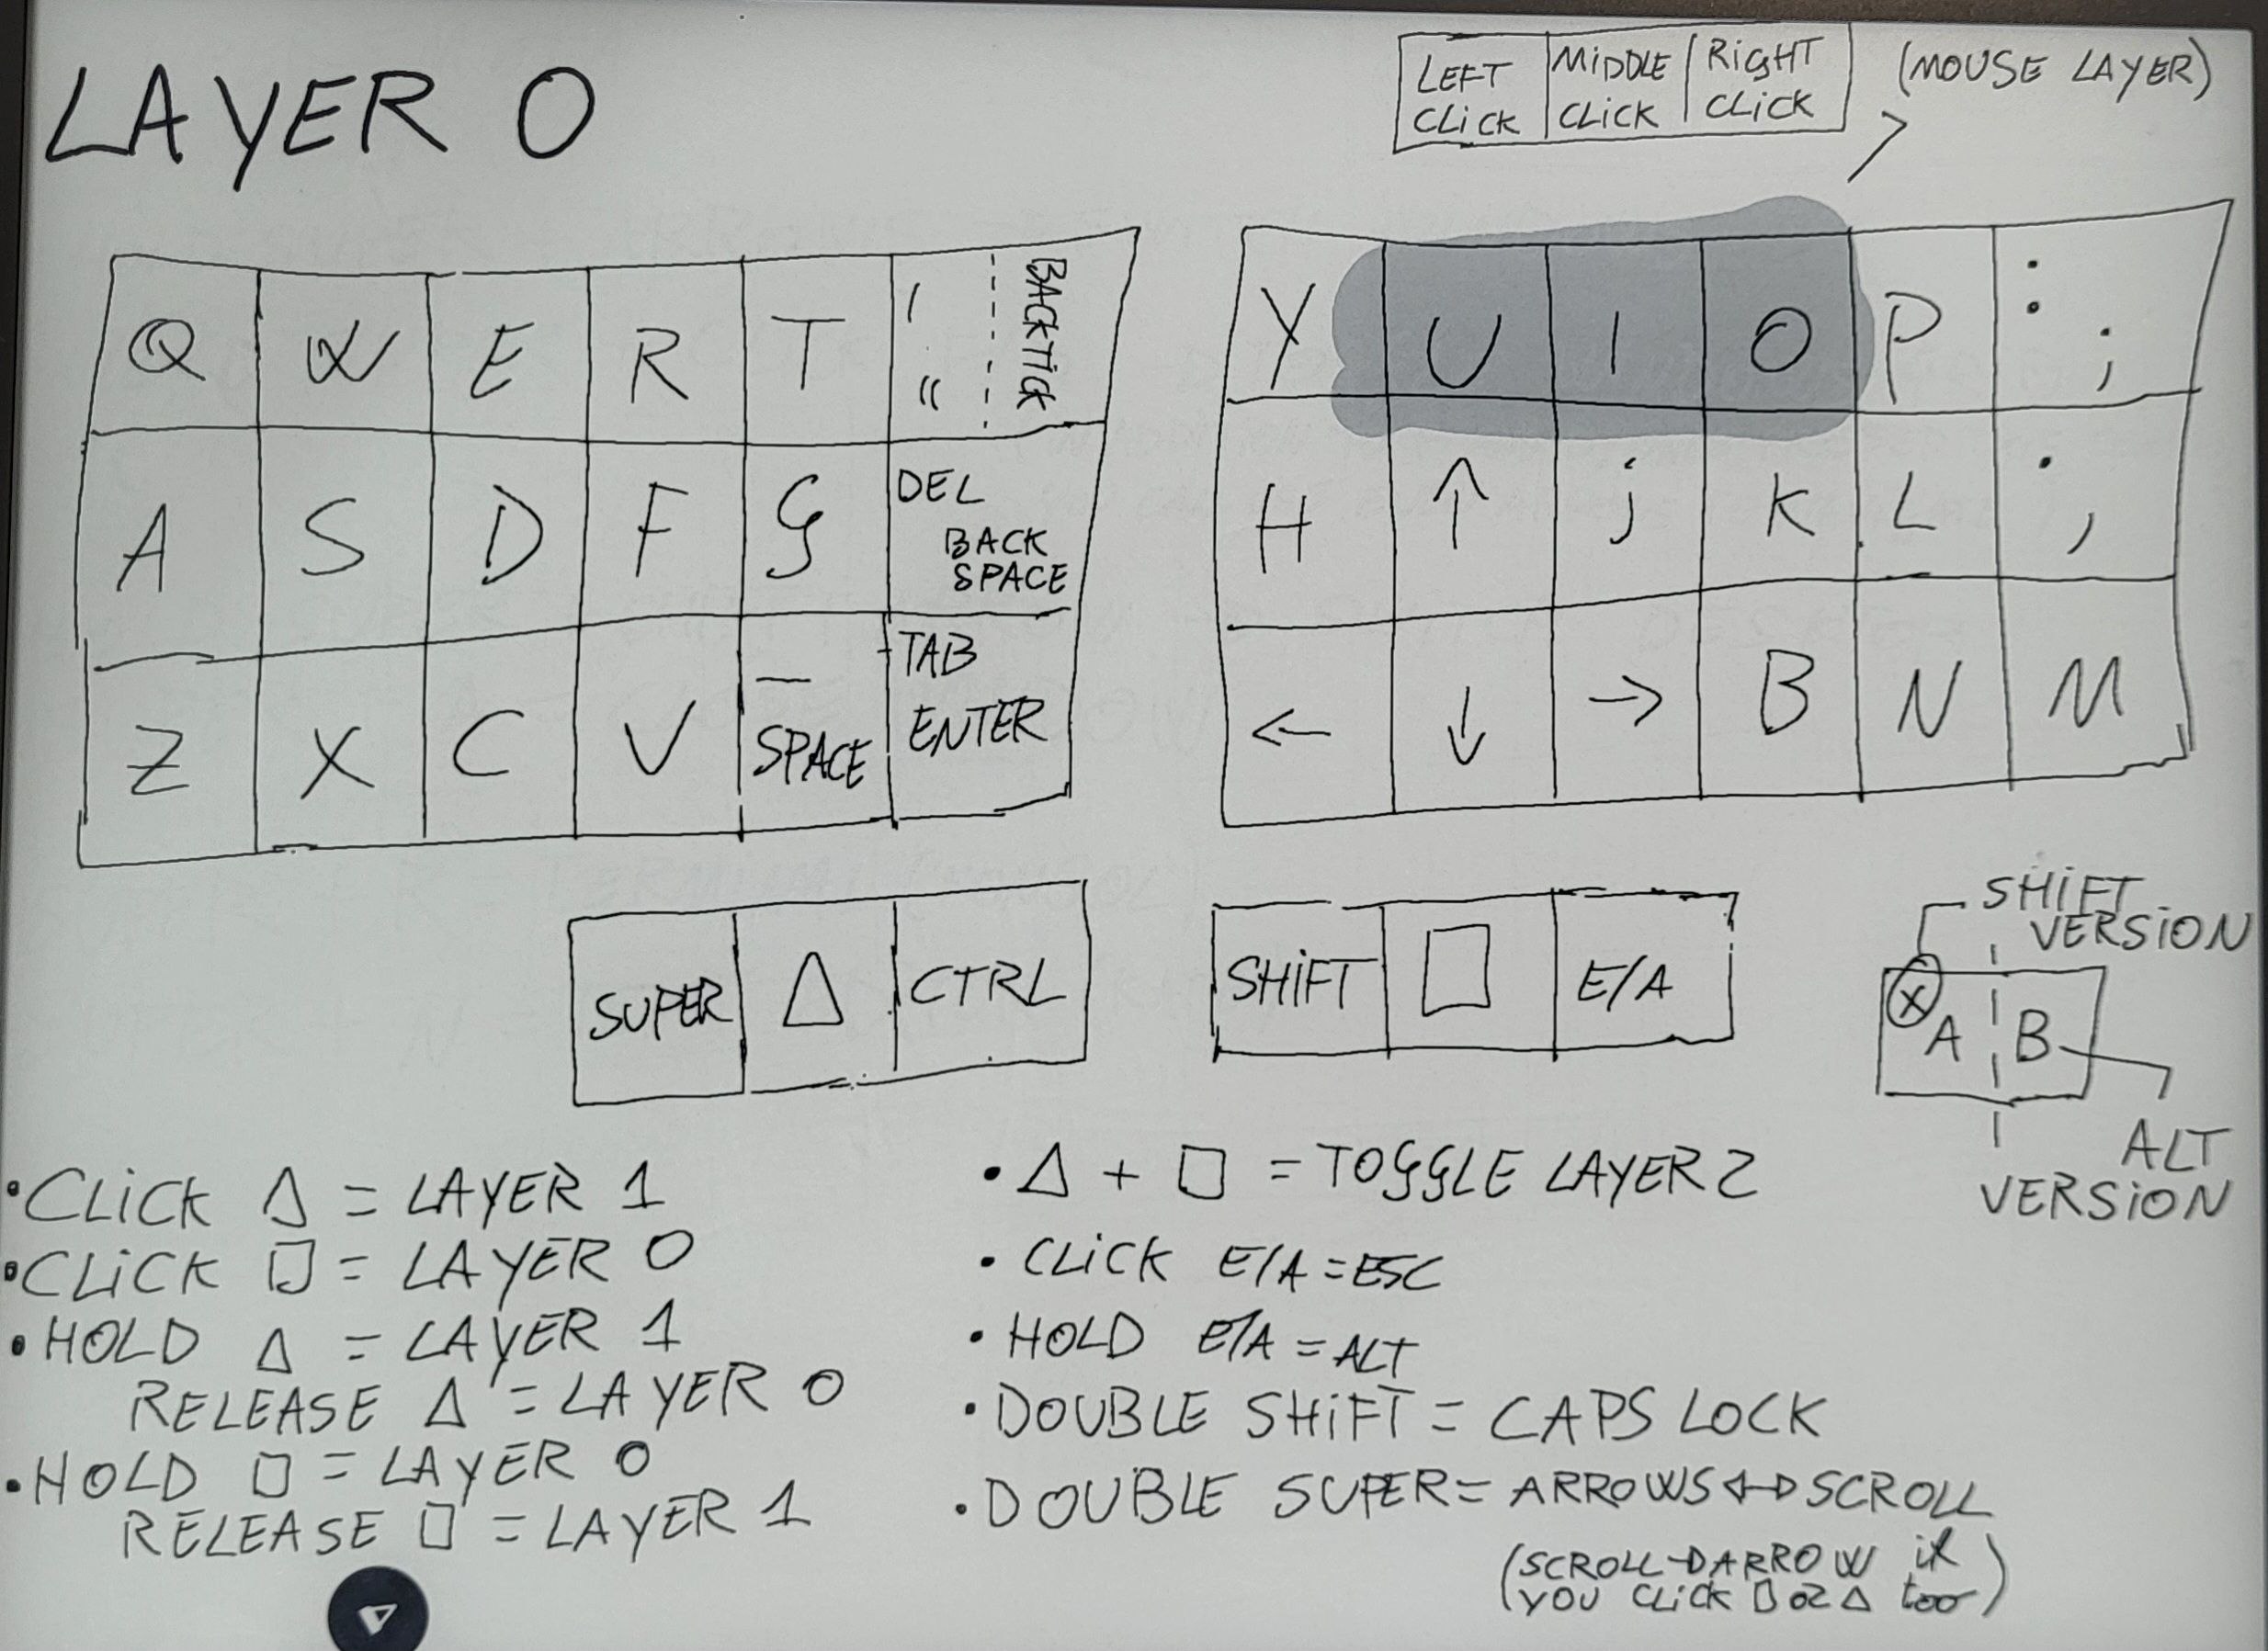 LAYER 0
LEFT CLICK MIDDLE CLICK RIGHT CLICK
(MOUSE LAYER)
Q W E R T ' " BACKTICK
A S D F G DEL BACK SPACE
Z X C V _ SPACE TAB ENTER
Y U I O P : ;
H ↑ j K L . ,
← ↓ → B N M
SUPER △ CTRL
SHiFT □ E/A
SHiFT
VERSiON
X A B
ALT
VERSiON
• CLiCK △ = LAYER 1
• CLiCK □ = LAYER 0
• HOLD △ = LAYER 1
RELEASE △ = LAYER 0
• HOLD □ = LAYER 0
RELEASE □ = LAYER 1
• △ + □ = TOGGLE LAYER 2
• CLiCK E/A = ESC
• HOLD E/A = ALT
• DOUBLE SHiFT = CAPS LOCK
• DOUBLE SUPER = ARROWS ↔ SCROLL
(SCROLL → ARROW if
YOU CLiCK □ or △ too)